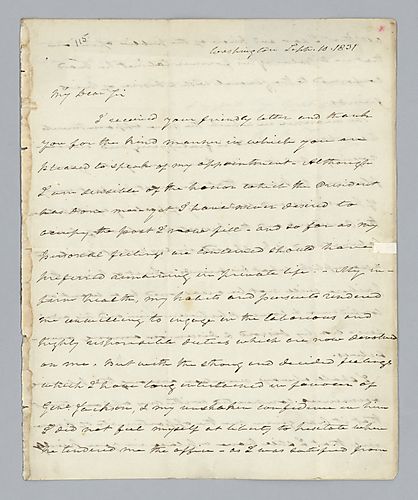 115
Washington Sept. 10. 1831
My dear Sir
I received your friendly letter and thank
you for the kind manner in which you are
pleased to speak of my appointment. Although
I am sensible of the honor which the President
has done me yet I have never desired to
occupy the post I now fill - and so far as my
personal feelings are concerned should have
preferred remaining in private life. - My im-
paired health, my habits and pursuits rendered
me unwilling to engage in the laborious and
highly responsible duties which are now devolved
on me. But with the strong and decided feelings
which I have long entertained in favour of
Genl. Jackson, & my unshaken confidence in him
I did not feel myself at liberty to hesitate when
he tendered me the office - as I was satisfied from